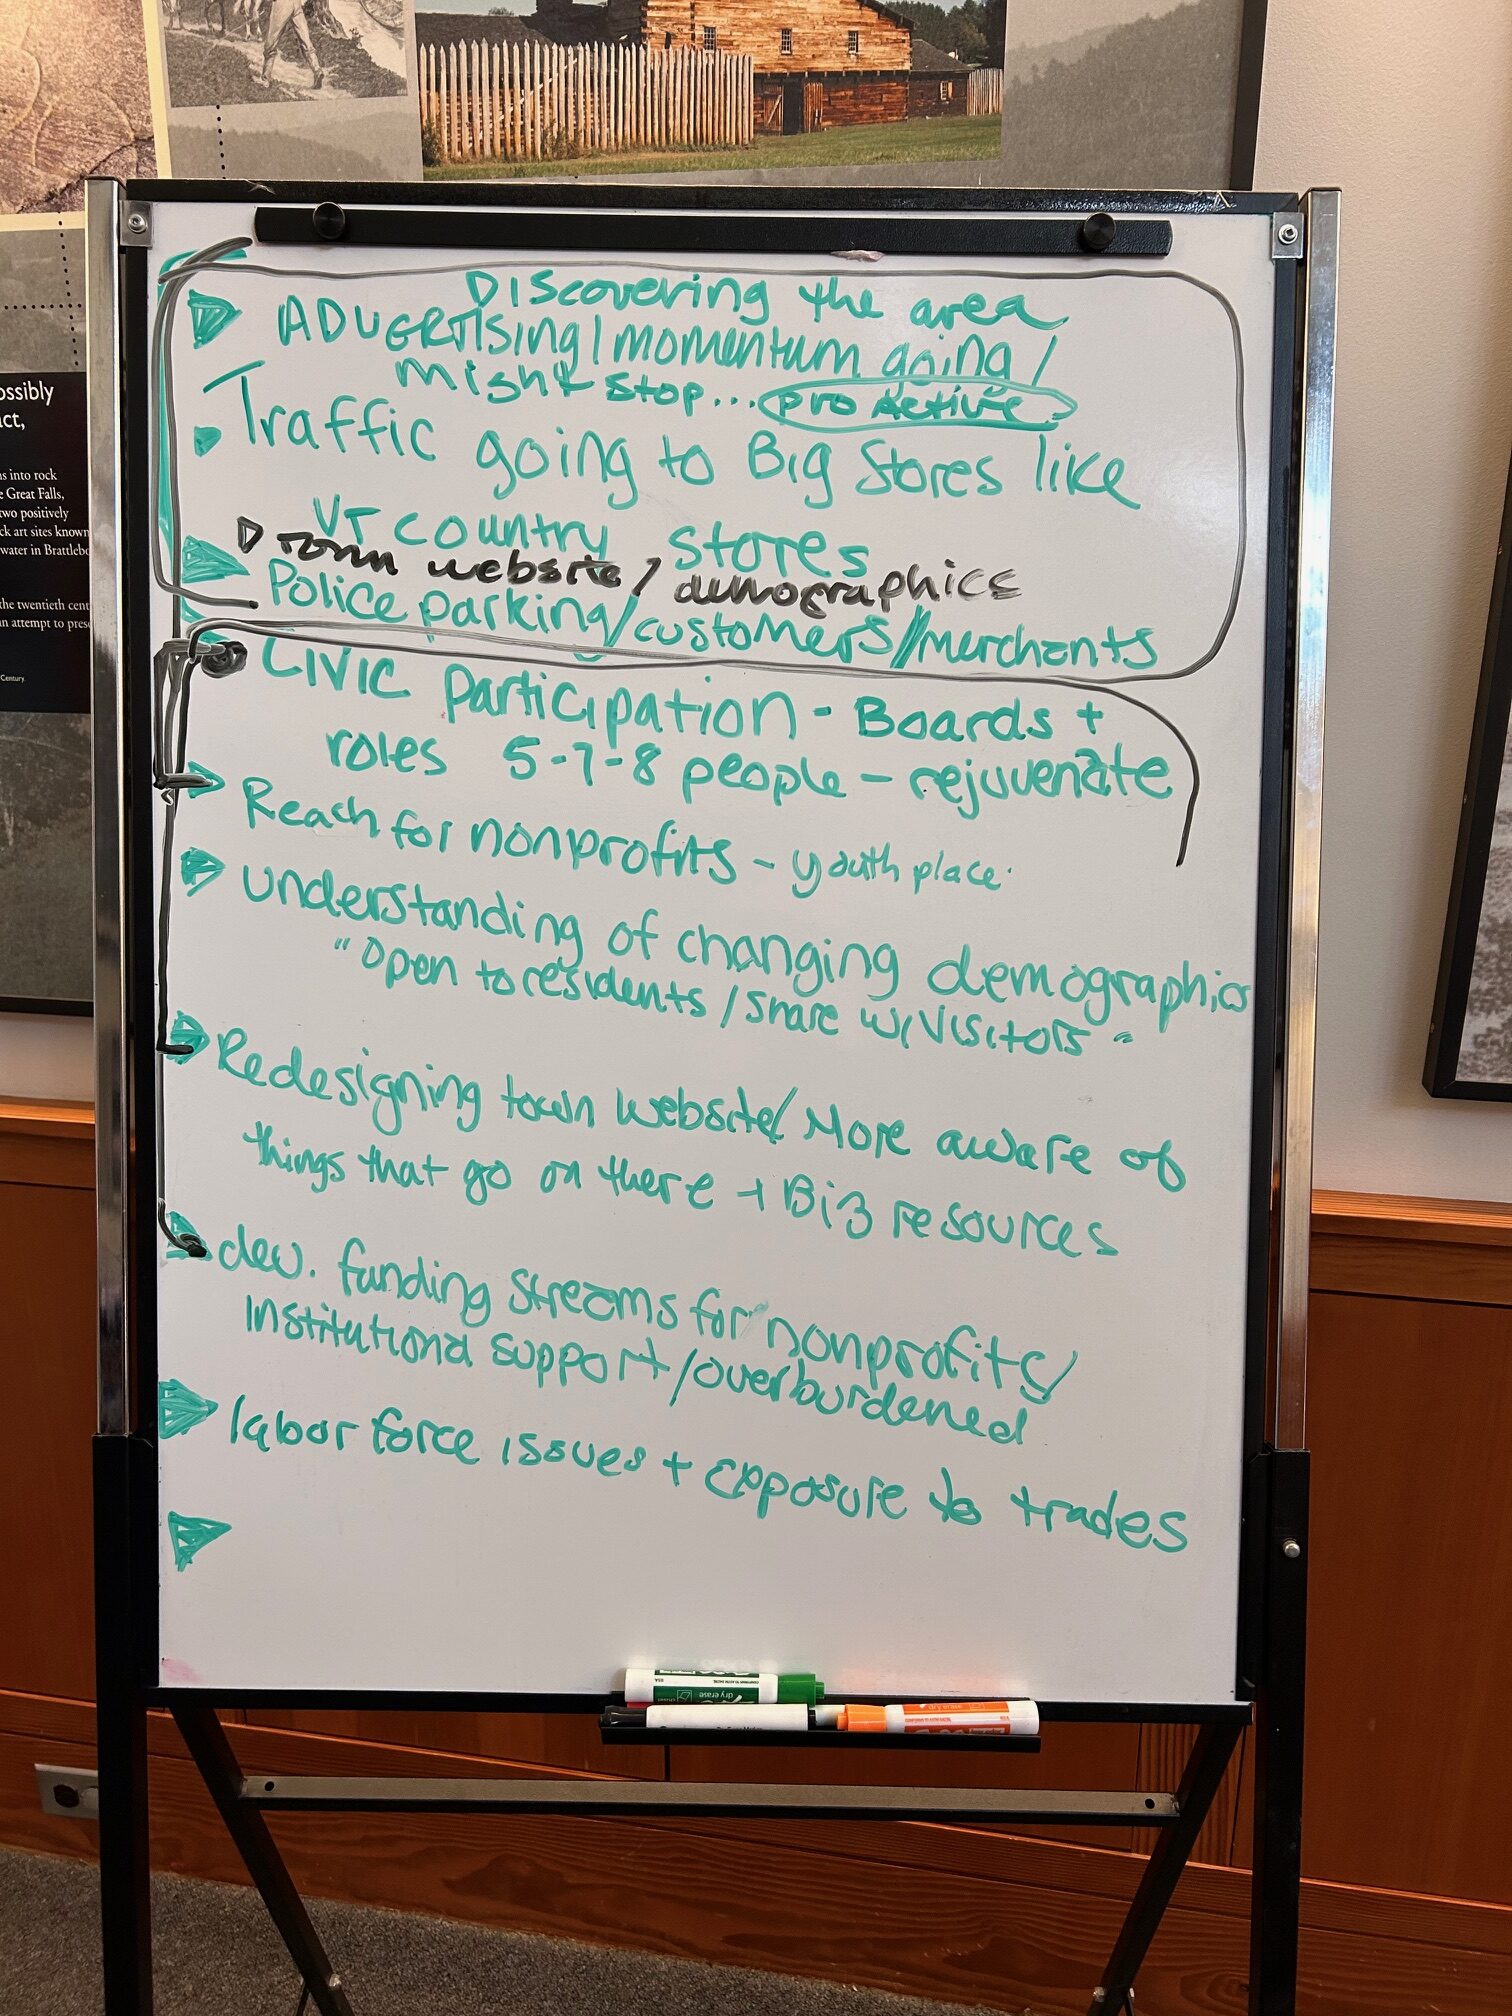 ossibly
act,
s into rock
e Great Falls,
two positively
ck art sites known
water in Brattlebo
the twentieth cent
an attempt to prese
Century.
Discovering the area
ADVERTISING/momentum going/
might stop... pro Active
Traffic going to Big Stores like
VT country stores
town website/demographics
Police parking/customers//merchants
CIVIC participation - Boards +
roles 5-7-8 people - rejuvenate
Reach for nonprofits - youth place.
understanding of changing demographics
"Open to residents/share w/visitors"
Redesigning town website/More aware of
things that go on there + Biz resources
dev. funding streams for nonprofits/
Institutional support/overburdened
labor force issues + exposure to trades